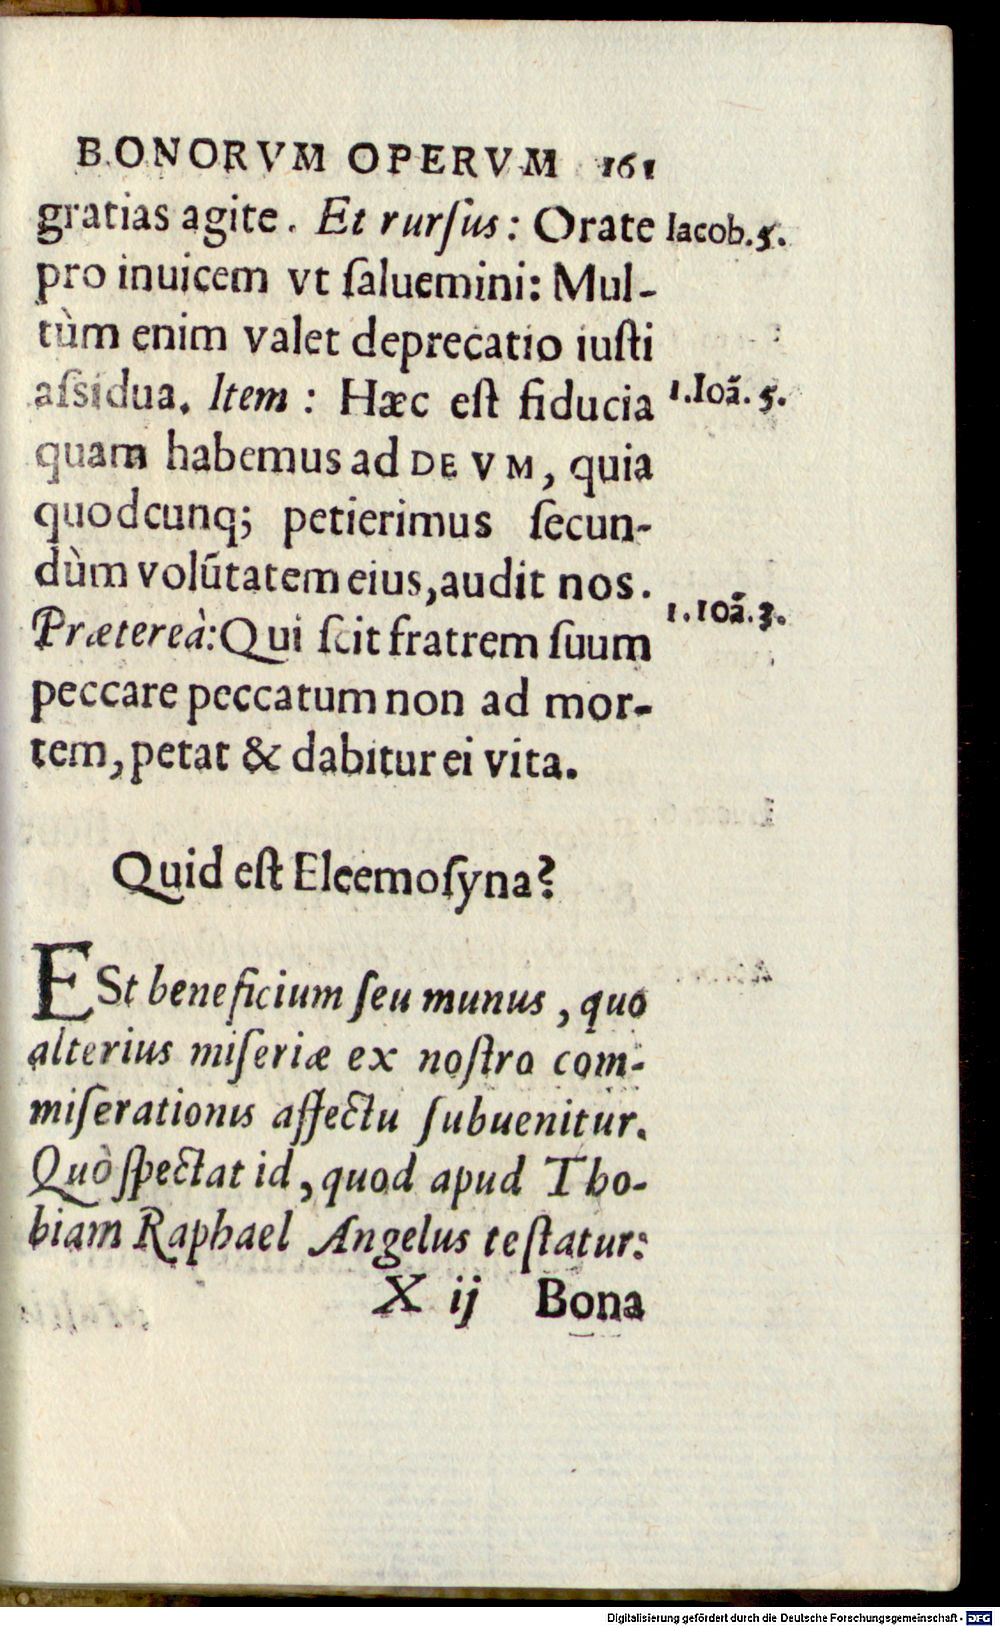 BONORVM OPERVM 161
gratias agite. Et rurſus: Orate
Iacob.5.
pro inuicem vt ſaluemini: Mul-
tùm enim valet deprecatio iuſti
aſsidua. Item: Hæc eſt fiducia
1.Ioã.5.
quam habemus ad DEVM, quia
quodcunq; petierimus ſecun-
dùm volũtatem eius, audit nos.
1.Ioã.3.
Prætereà: Qui ſcit fratrem ſuum
peccare peccatum non ad mor-
tem, petat & dabitur ei vita.
Quid eſt Eleemoſyna?
ESt beneficium ſeu munus, quo
alterius miſeriæ ex noſtro com-
miſerationis affectu ſubuenitur.
Quò ſpectat id, quod apud Tho-
biam Raphael Angelus teſtatur:
X ij Bona
Digitalisierung gefördert durch die Deutsche Forschungsgemeinschaft - DFG